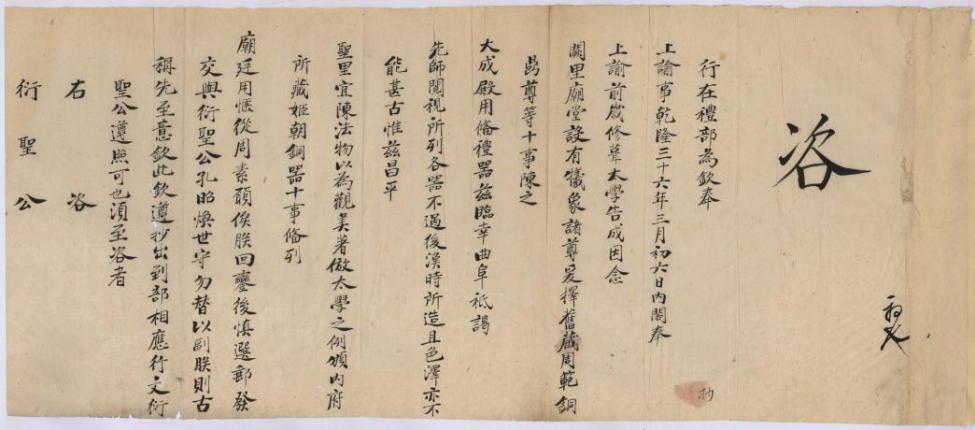 咨
行在禮部為欽奉
上諭事乾隆三十六年三月初六日內閣奉
上諭前歲修葺太學告成因念
闕里廟堂設有犧象諸尊爰擇舊藏周範銅
尊等十事陳之
大成殿用俻禮器茲臨幸曲阜祗謁
先師閱視所列各器不過後漢時所造且色澤亦不
能甚古惟茲昌平
聖里宜陳法物以為觀美著倣太學之例頒內府
所藏姬朝銅器十事俻列
廟廷用愜從周素願俟朕回鑾後慎選郵發
交與衍聖公孔昭煥世守勿替以副朕則古
稱先至意欽此欽遵抄出到部相應行文衍
聖公遵照可也須至咨者
右咨
衍聖公
抄